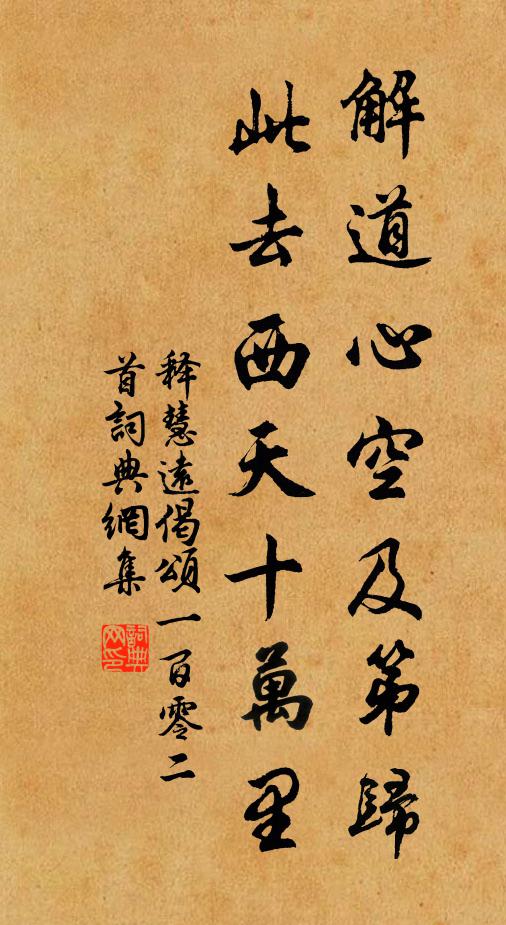 解道心空及第歸
此去西天十萬里
釋慧遠偈頌一百零二
首詞典網集
詞典
网印